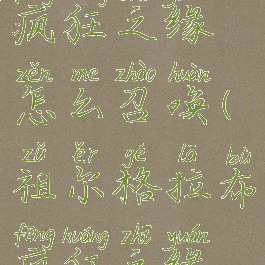 疯狂之缘
zěn me zhào huàn
怎么召唤(
zǔ ěr gé lā bù
祖尔格拉布
fēng kuáng zhī yuán
疯狂之缘